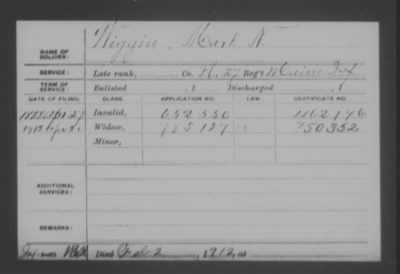 NAME OF SOLDIER: Wiggin, Mark N.
SERVICE: Late rank, Co. H, 27 Reg't Maine Inf.
TERM OF SERVICE: Enlisted , 1 Discharged , 1
DATE OF FILING. CLASS. APPLICATION NO. LAW. CERTIFICATE NO.
1888 Apr 27 Invalid, 652,550 1162,796
1912 Widow, 985,129 750352
Minor,
ADDITIONAL SERVICES:
REMARKS:
Died Feb 2, 1912, at